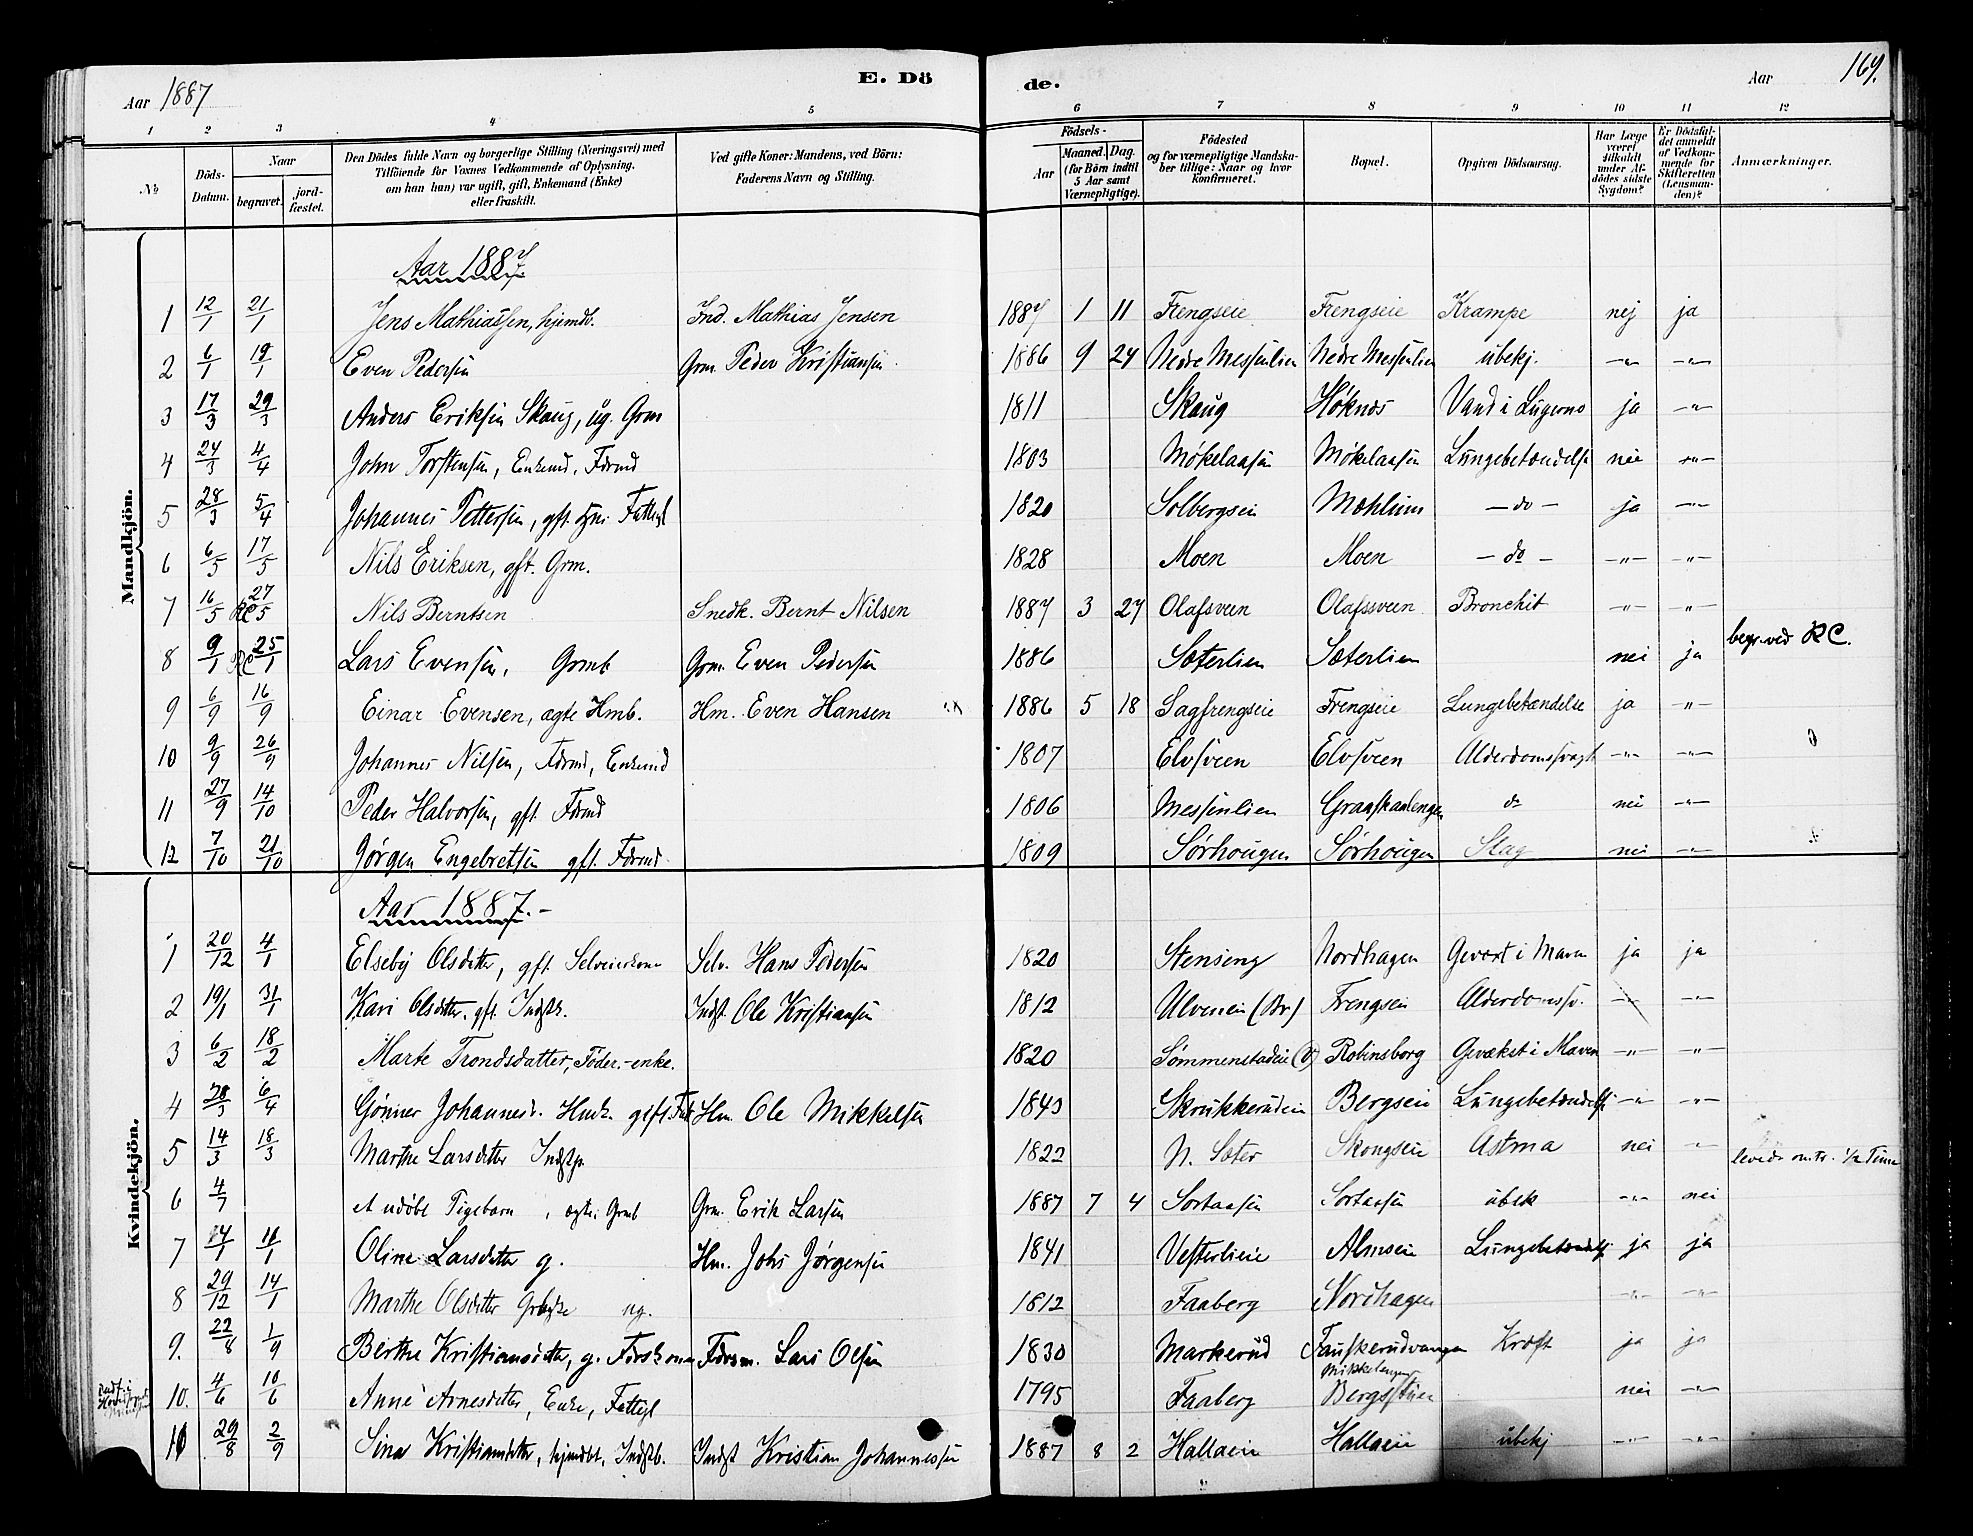 Aar 1887
E. Dö
de.
Aar
169.
1 2 3 4 5 6 7 8 9 10 11 12
No
Döds-Datum.
Naar
begravet.
jord-fæstet.
Den Dödes fulde Navn og borgerlige Stilling (Næringsvei) med
Tilföiende for Voxnes Vedkommende af Oplysning,
om han (hun) var ugift, gift, Enkemand (Enke)
eller fraskilt.
Ved gifte Koner: Mandens, ved Börn:
Faderens Navn og Stilling.
Födsels-
Aar
Maaned. Dag.
(for Børn indtil
5 Aar samt
Værnepligtige).
Födested
og for værnepligtige Mandska-
ber tillige: Naar og hvor
konfirmeret.
Bopæl.
Opgiven Dödsaarsag.
Har Læge
været
tilkaldt
under Af-
dødes sidste
Sygdom?
Er Dödsfal-
det anmeldt
af Vedkom-
mende for
Skifteretten
(Lensman-
den)?
Anmærkninger.
Mandkjön.
Aar 1887
1 12/1 21/1 Jens Mathiassen, hjemdb. Ind. Mathias Jensen 1887 1 11 Frengseie Frengseie Krampe nej ja
2 6/1 19/1 Even Pedersen Grm. Peder Kristiansen 1886 9 24 Nedre Messenlien Nedre Messenlien übekj. -"- -"-
3 17/3 29/3 Anders Eriksen Skaug, ug. Grm 1811 Skaug Höknes Vand i Lugerne ja -"-
4 24/3 4/4 John Torstensen, Enkemd. Fdrmd 1803 Mökelaasen Mökelaasen Lungebetændelse nei -"-
5 28/3 5/4 Johannes Pettersen, gft. Fattigl 1820 Solbergseie Mæhlum - do - ja -"-
6 6/5 17/5 Nils Eriksen, gft. Grm. 1828 Moen Moen - do - -"- -"-
7 16/5 RC 27/5 Nils Berntsen Snedk. Bernt Nilsen 1887 3 27 Olafsveen Olafssveen Bronchit -"- -"-
8 9/1 RC 25/1 Lars Evensen, Grmb Grm. Even Pedersen 1886 Sæterlien Sæterlien nei ja begr. ved RC.
9 6/9 16/9 Einar Evensen, ægte Hmb. Hm. Even Hansen 1886 5 18 Sagfrengseie Frengseie Lungebetændelse ja -"-
10 9/9 26/9 Johannes Nilsen, Fdrmd, Enkemd 1807 Elvsveen Elvsveen Alderdomssvagt -"- -"-
11 27/9 14/10 Peder Halvorsen, gft. Fdrmd 1806 Messenlien Graaskaalengen do nei -"-
12 7/10 21/10 Jörgen Engebretsen gft. Fdrmd 1809 Sörhougen Sörhougen Slag nei -"-
Kvindekjön.
Aar 1887.-
1 20/12 4/1 Elseby Olsdatter, gft. Selveierkone Selv. Hans Pedersen 1820 Stenseng Nordhagen Gevext i Maven ja ja
2 19/1 31/1 Kari Olsdatter, gft. Indstk. Indst. Ole Kristiansen 1812 Ulveneie (Br) Frengseie Alderdomssv. -"- -"-
3 6/2 18/2 Marte Trondsdatter, Föder.-enke. 1820 Sömmenstadeie (V) Robinsborg Gevækst i Maven -"- -"-
4 28/3 6/4 Gönner Johannesd. Hmk. gift. Hm. Ole Mikkelsen 1843 Skrukkerudeie Bergseie Lungebetændelse -"- -"-
5 14/3 18/3 Marthe Larsdatter Indstp. 1822 N. Sæter Skougseie Astma nei -"
6 4/7 et udöbt Pigebarn, ægte, Grmb Grm. Erik Larsen 1887 7 4 Sortaasen Sortaasen übek -"- nei levede omtr. 1/2 Time
7 11/1 Oline Larsdatter g. Hm. Johs Jørgensen 1841 Vesterlieie Almseie Lungebetændelse ja ja
8 29/12 14/1 Marthe Olsdatter ug. 1812 Faaberg Nordhagen -"- -"-
9. 22/8 1/9 Berthe Kristiansdatter, g. Fdrskone Fdrsm. Lars Olsen 1830 Markerud Fauskerudvangen Kræft ja ja
10. 4/6 10/6 Anne Arnesdatter, Enke, Fattigl 1795 Faaberg Mikkelengen Bergsstuen nei -"-
11 29/8 2/9 Sina Kristiansdatter, hjemdbt. Indstb. Indst Kristian Johannessen 1887 8 2 Hallaeie Hallaeie übekj -"- -"-